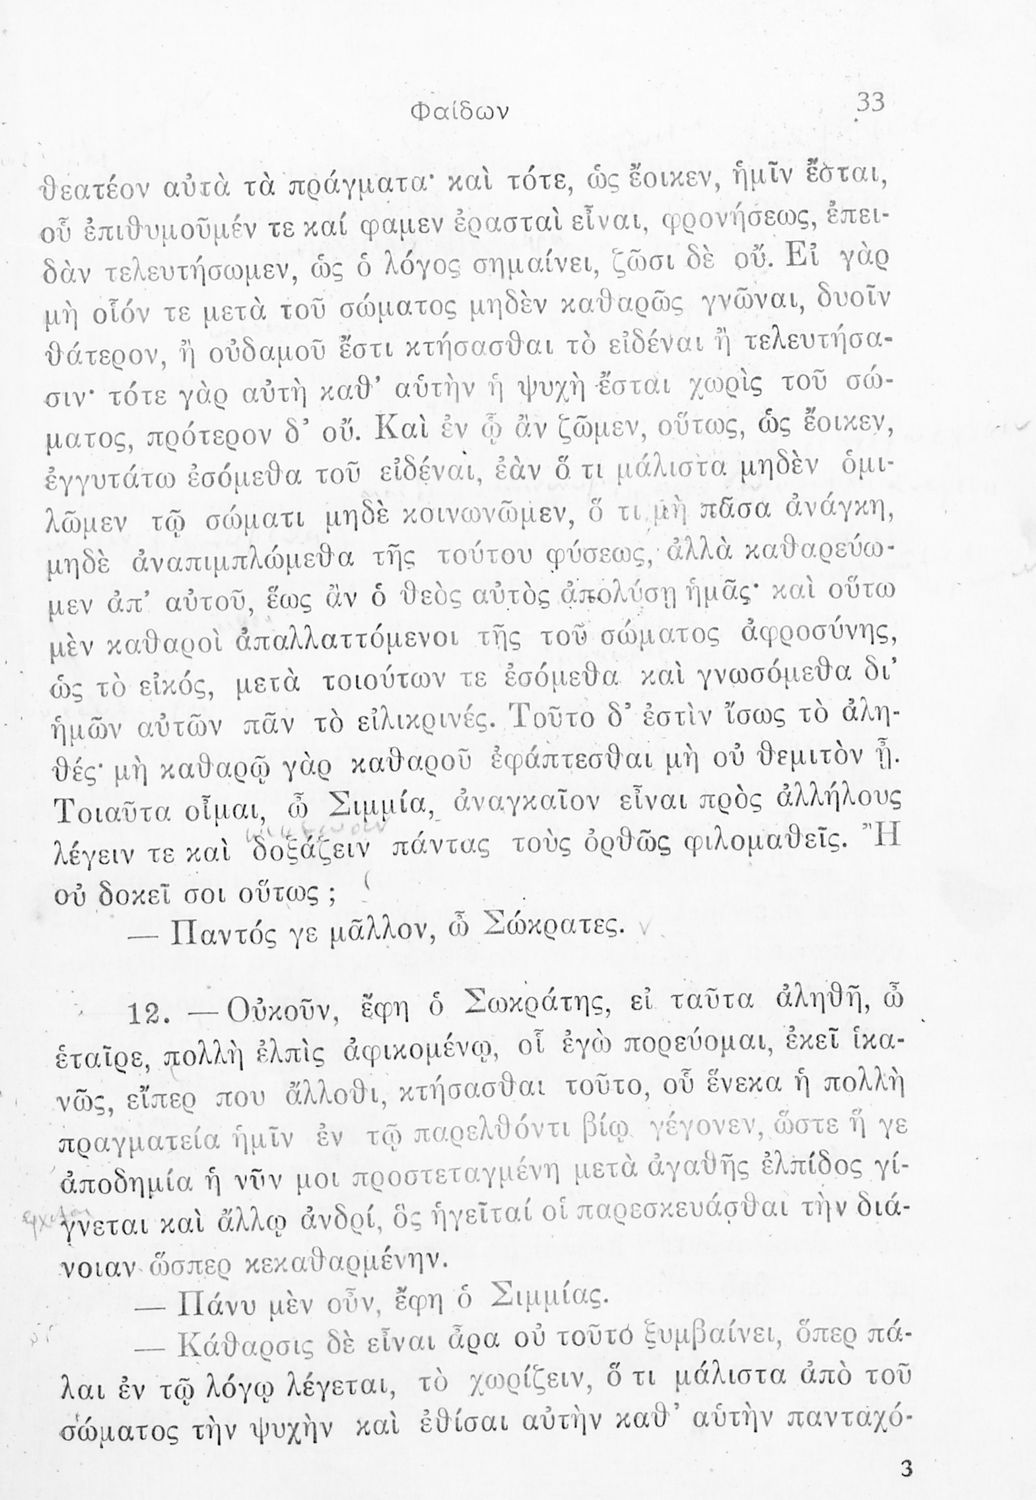 Φαίδων 33
θεατέον αὐτὰ τὰ πράγματα· καὶ τότε, ὡς ἔοικεν, ἡμῖν ἔσται,
οὗ ἐπιθυμοῦμέν τε καί φαμεν ἐρασταὶ εἶναι, φρονήσεως, ἐπει-
δὰν τελευτήσωμεν, ὡς ὁ λόγος σημαίνει, ζῶσι δὲ οὔ. Εἰ γὰρ
μὴ οἷόν τε μετὰ τοῦ σώματος μηδὲν καθαρῶς γνῶναι, δυοῖν
θάτερον, ἢ οὐδαμοῦ ἔστι κτήσασθαι τὸ εἰδέναι ἢ τελευτήσα-
σιν· τότε γὰρ αὐτὴ καθ’ αὑτὴν ἡ ψυχὴ ἔσται χωρὶς τοῦ σώ-
ματος, πρότερον δ’ οὔ. Καὶ ἐν ᾧ ἂν ζῶμεν, οὕτως, ὡς ἔοικεν,
ἐγγυτάτω ἐσόμεθα τοῦ εἰδέναι, ἐὰν ὅ τι μάλιστα μηδὲν ὁμι-
λῶμεν τῷ σώματι μηδὲ κοινωνῶμεν, ὅ τι μὴ πᾶσα ἀνάγκη,
μηδὲ ἀναπιμπλώμεθα τῆς τούτου φύσεως, ἀλλὰ καθαρεύω-
μεν ἀπ’ αὐτοῦ, ἕως ἂν ὁ θεὸς αὐτὸς ἀπολύσῃ ἡμᾶς· καὶ οὕτω
μὲν καθαροὶ ἀπαλλαττόμενοι τῆς τοῦ σώματος ἀφροσύνης,
ὡς τὸ εἰκός, μετὰ τοιούτων τε ἐσόμεθα καὶ γνωσόμεθα δι’
ἡμῶν αὐτῶν πᾶν τὸ εἰλικρινές. Τοῦτο δ’ ἐστὶν ἴσως τὸ ἀλη-
θές· μὴ καθαρῷ γὰρ καθαροῦ ἐφάπτεσθαι μὴ οὐ θεμιτὸν ᾖ.
Τοιαῦτα οἶμαι, ὦ Σιμμία, ἀναγκαῖον εἶναι πρὸς ἀλλήλους
λέγειν τε καὶ δοξάζειν πάντας τοὺς ὀρθῶς φιλομαθεῖς. Ἢ
οὐ δοκεῖ σοι οὕτως ;
— Παντός γε μᾶλλον, ὦ Σώκρατες.
12. — Οὐκοῦν, ἔφη ὁ Σωκράτης, εἰ ταῦτα ἀληθῆ, ὦ
ἑταῖρε, πολλὴ ἐλπὶς ἀφικομένῳ, οἷ ἐγὼ πορεύομαι, ἐκεῖ ἱκα-
νῶς, εἴπερ που ἄλλοθι, κτήσασθαι τοῦτο, οὗ ἕνεκα ἡ πολλὴ
πραγματεία ἡμῖν ἐν τῷ παρελθόντι βίῳ γέγονεν, ὥστε ἥ γε
ἀποδημία ἡ νῦν μοι προστεταγμένη μετὰ ἀγαθῆς ἐλπίδος γί-
γνεται καὶ ἄλλῳ ἀνδρί, ὃς ἡγεῖταί οἱ παρεσκευάσθαι τὴν διά-
νοιαν ὥσπερ κεκαθαρμένην.
— Πάνυ μὲν οὖν, ἔφη ὁ Σιμμίας.
— Κάθαρσις δὲ εἶναι ἆρα οὐ τοῦτο ξυμβαίνει, ὅπερ πά-
λαι ἐν τῷ λόγῳ λέγεται, τὸ χωρίζειν, ὅ τι μάλιστα ἀπὸ τοῦ
σώματος τὴν ψυχὴν καὶ ἐθίσαι αὐτὴν καθ’ αὑτὴν πανταχό-
3